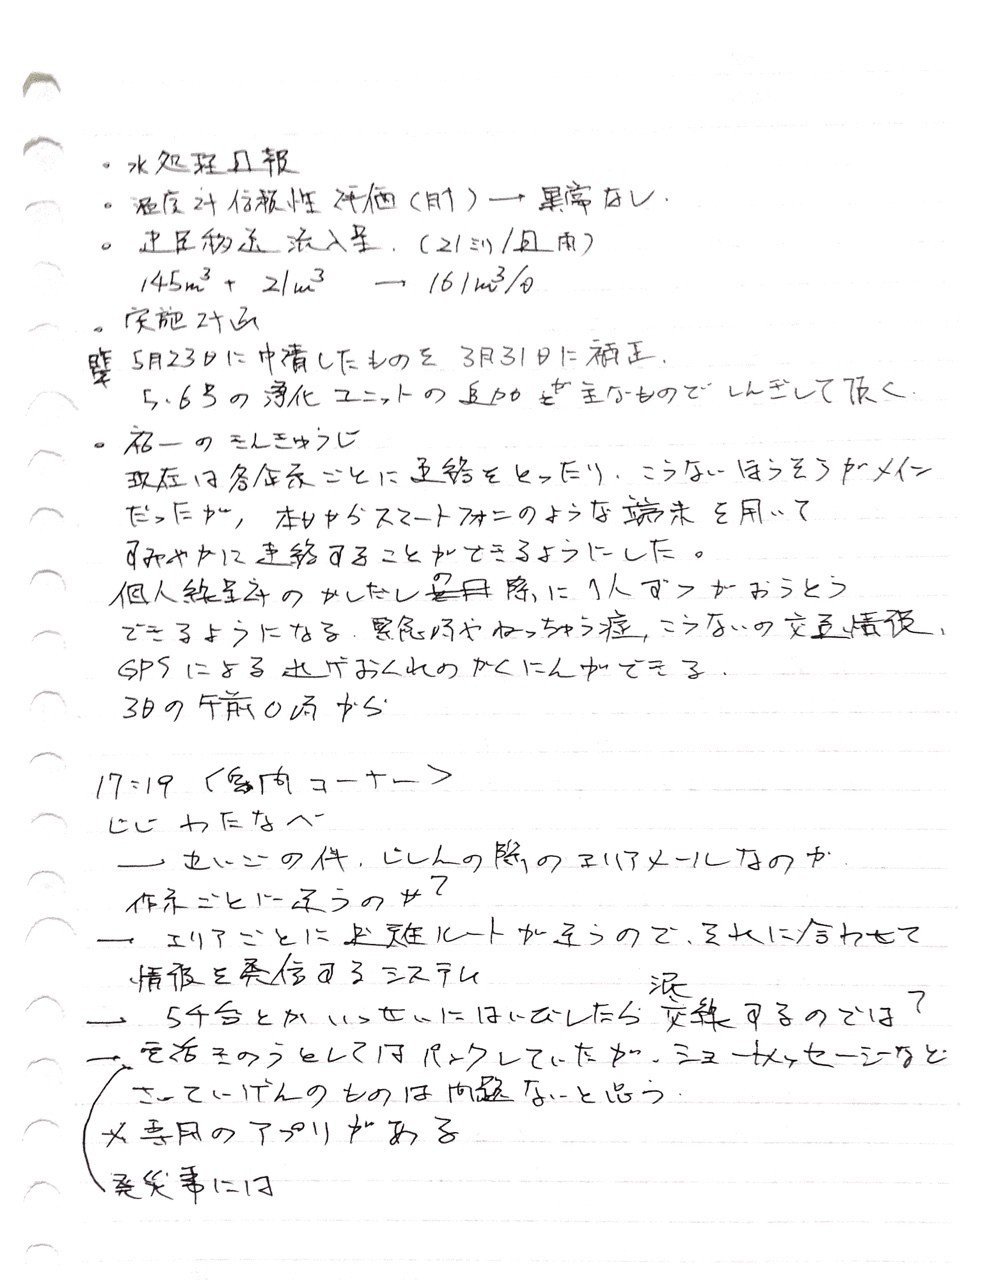 ・水処理日報
・温度計信頼性評価(月1) → 異常なし.
・建屋移送 流入量. (21ミリ/日 雨)
145m³ + 21m³ → 161m³/日
・実施計画
昨年 5月23日に申請したものを 3月31日に補正.
5.6号の浄化ユニットの追加が主なものでしんぎして頂く.
・ 一のきんきゅうじ
現在は各 ごとに連絡をとったり、こうないほうそうがメイン
だったが, 本日からスマートフォンのような端末を用いて
すみやかに連絡することができるようにした。
個人線量計のかしだしの際に1人ずつがおうとう
できるようになる. 緊急時やねっちゅう症, こうないの交通情報,
GPSによる おくれのかくにんができる.
3日の午前0時から
17:19 <質問コーナー>
じじ わたなべ
→ せいごの件. じしんの際のエリアメールなのか.
作業ごとに違うのか?
→ エリアごとに避難ルートが違うので、それに合わせて
情報を発信するシステム
→ 5千台とかいっせいにはいびしたら混交線するのでは?
→ 電話きのうとしてはパンクしていたが、ショートメッセージなど
さいていげんのものは問題ないと思う.
※専用のアプリがある
発災事には